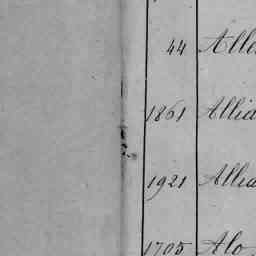 44 Alle
1861 Allia
1921 Allia
1705 Alo